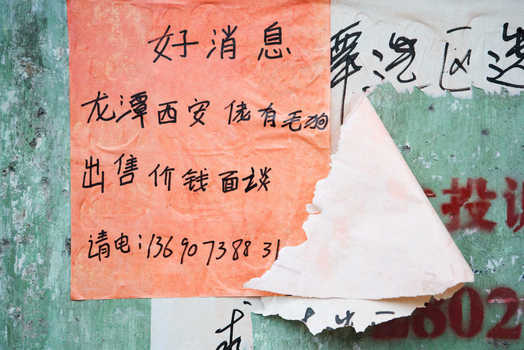 好消息
龙潭西安佬有毛狗
出售价钱面谈
请电：1369073883
区选
投
2802
求